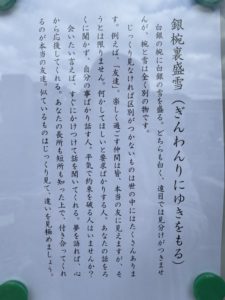 銀椀裏盛雪（ぎんわんりにゆきをもる）
白銀の椀に白銀の雪を盛る。どちらも白く、遠目では見分けがつきませ
んが、椀と雪は全く別の物です。
じっくり見なければ区別がつかないものは世の中にはたくさんありま
す。例えば、「友達」。楽しく過ごす仲間は皆、本当の友に見えますが、そ
うとは限りません。何かしてほしいと要求ばかりする人。あなたの話をろ
くに聞かず、自分の事ばかり話す人。平気で約束を破る人はいませんか？
会いたい言えば、すぐにかけつけて話を聞いてくれる。夢を語れば、心
から応援してくれる。あなたの長所も短所も知った上で、付き合ってくれ
るのが本当の友達。似ているものはじっくり見て、違いを見極めましょう。